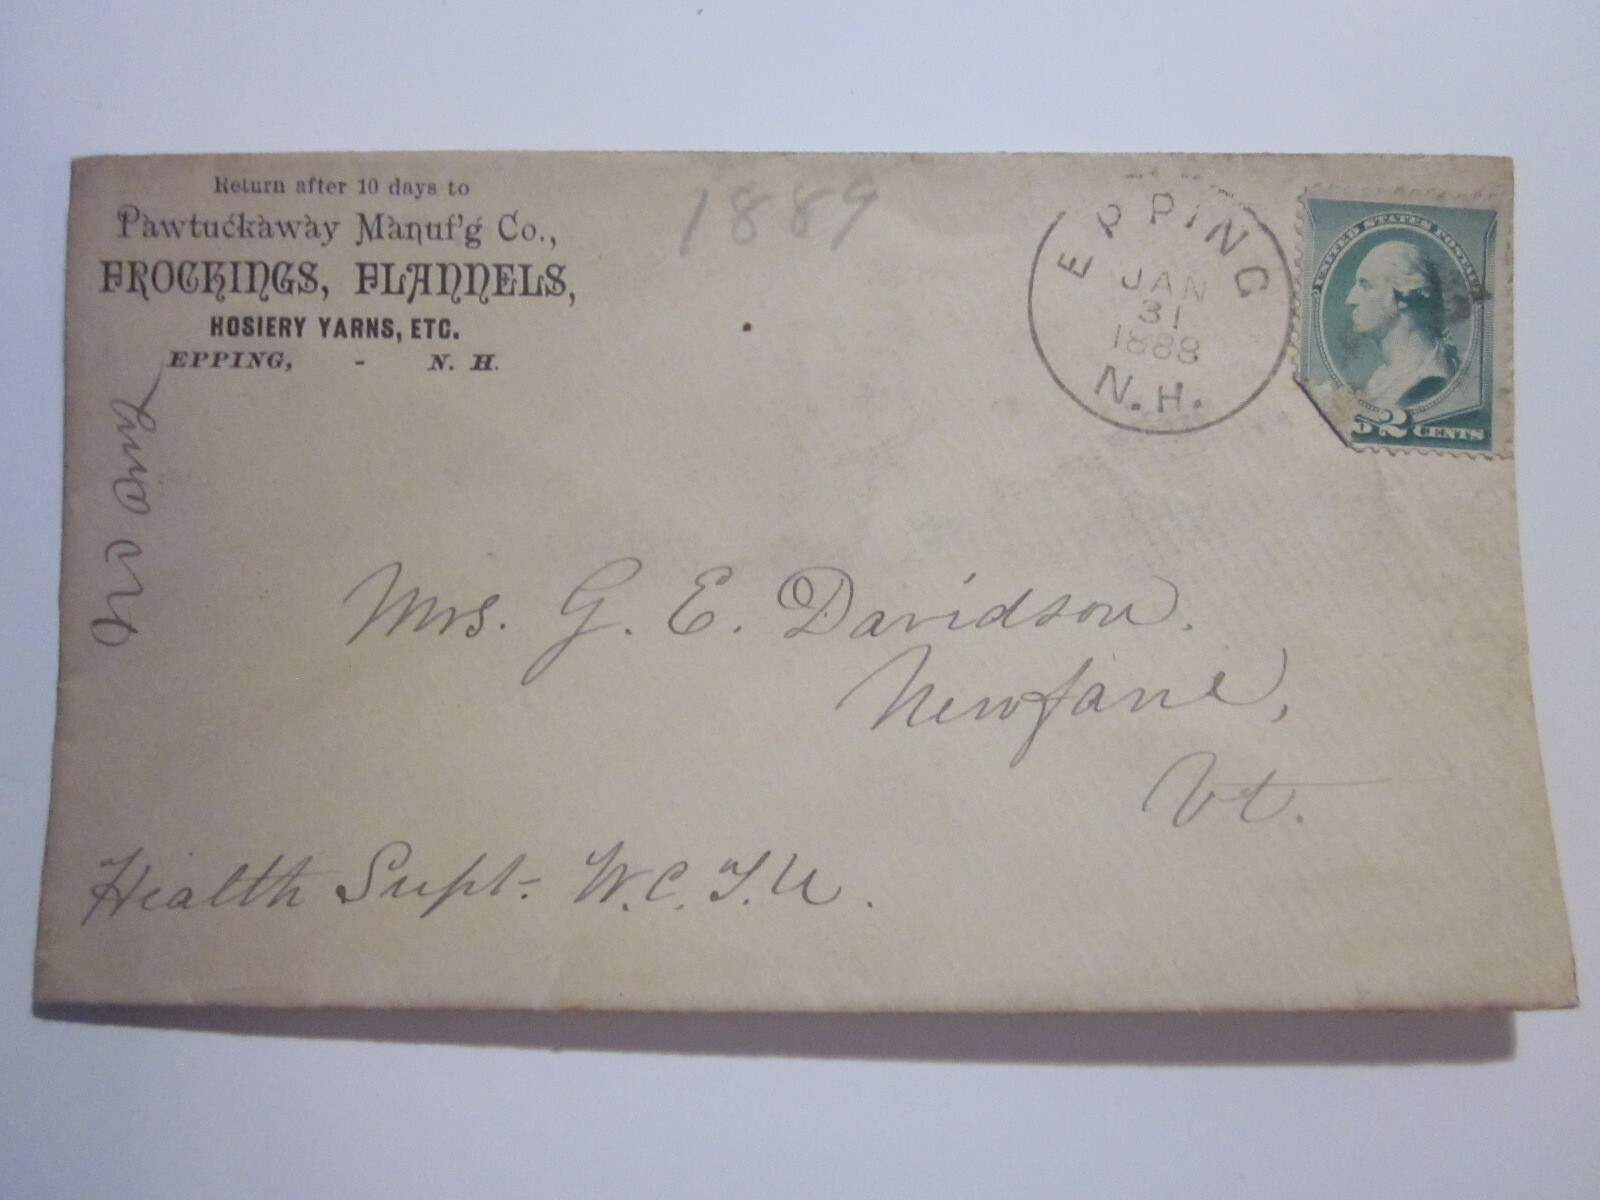 Return after 10 days to
Pawtuckaway Manuf'g Co.,
FROCKINGS, FLANNELS,
HOSIERY YARNS, ETC.
EPPING, - N. H.
1889
EPPING
JAN
31
1888
N.H.
UNITED STATES POSTAGE
2 CENTS
Mrs. G. E. Davidson.
Newfane,
Vt.
Health Supt. W. C. T. U.